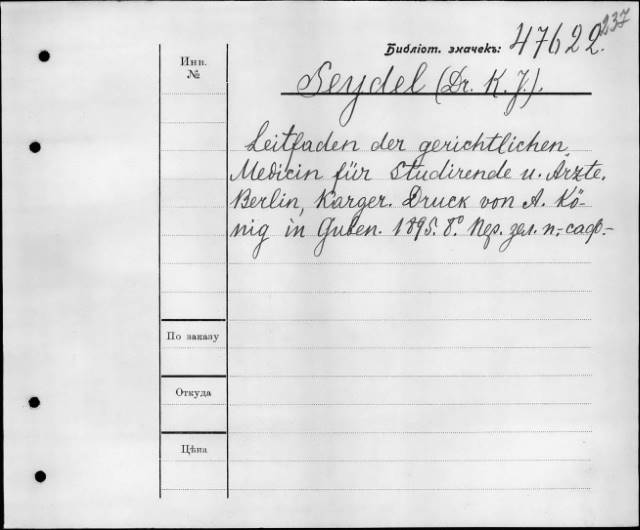 237
Библіот. значекъ: 47622.
Инв.
№
Seydel (Dr. K. J.).
Leitfaden der gerichtlichen
Medicin für Studirende u. Ärzte.
Berlin, Karger. Druck von A. Kö-
nig in Guben. 1895. 8º. Пер. зел. п.-саф.-
По заказу
Откуда
Цѣна